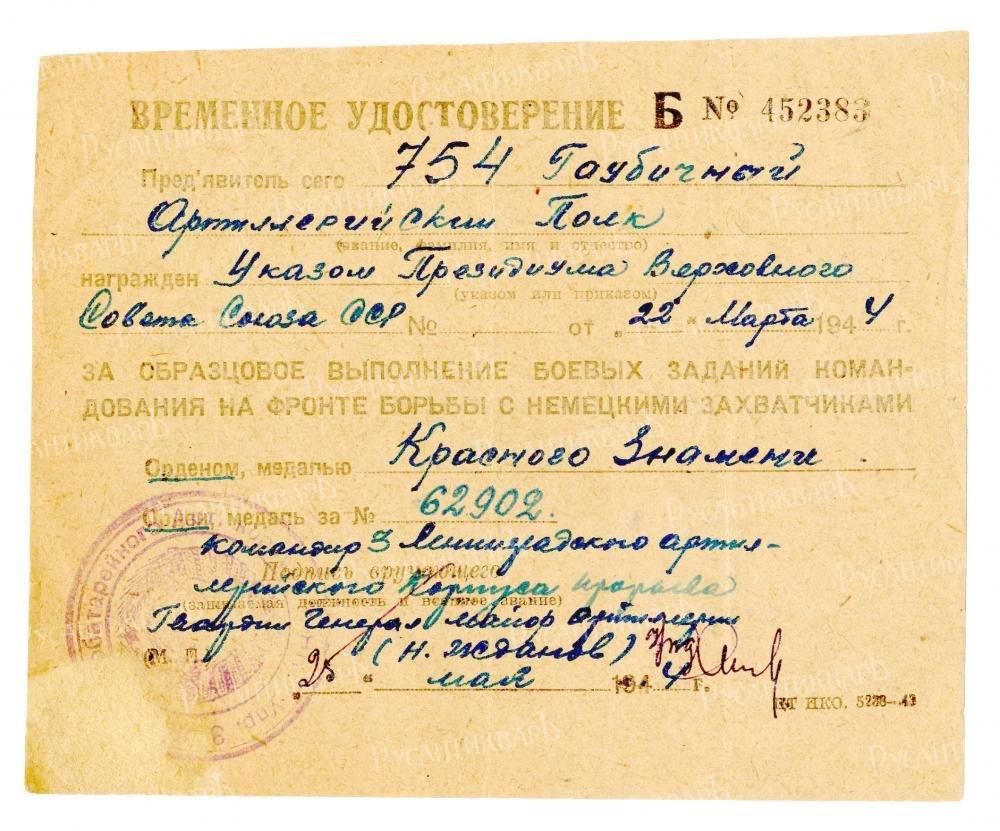 ВРЕМЕННОЕ УДОСТОВЕРЕНИЕ Б № 452383
Пред'явитель сего 754 Гаубичный
Артиллерийский Полк
(звание, фамилия, имя и отчество)
награжден Указом Президиума Верховного
(указом или приказом)
Совета Союза ССР № от „22" Марта 1944 г.
ЗА ОБРАЗЦОВОЕ ВЫПОЛНЕНИЕ БОЕВЫХ ЗАДАНИЙ КОМАН-
ДОВАНИЯ НА ФРОНТЕ БОРЬБЫ С НЕМЕЦКИМИ ЗАХВАТЧИКАМИ
Орденом, медалью Красного Знамени.
Орден, медаль за № 62902.
Командир 3 Ленинградского артил-
Подпись вручающего
лерийского Корпуса прорыва
(занимаемая должность и военное звание)
Гвардии Генерал майор артиллерии
(М. П. (Н. Жданов)
„25" мая 1944 г.
ЕТ НКО. 5238—43
батарейного Арт
Упр. 3
РУСАНТИКВАРЪ